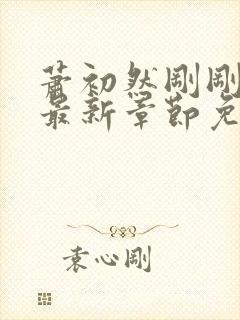 萧初然刚刚
最新章节免
袁心刚